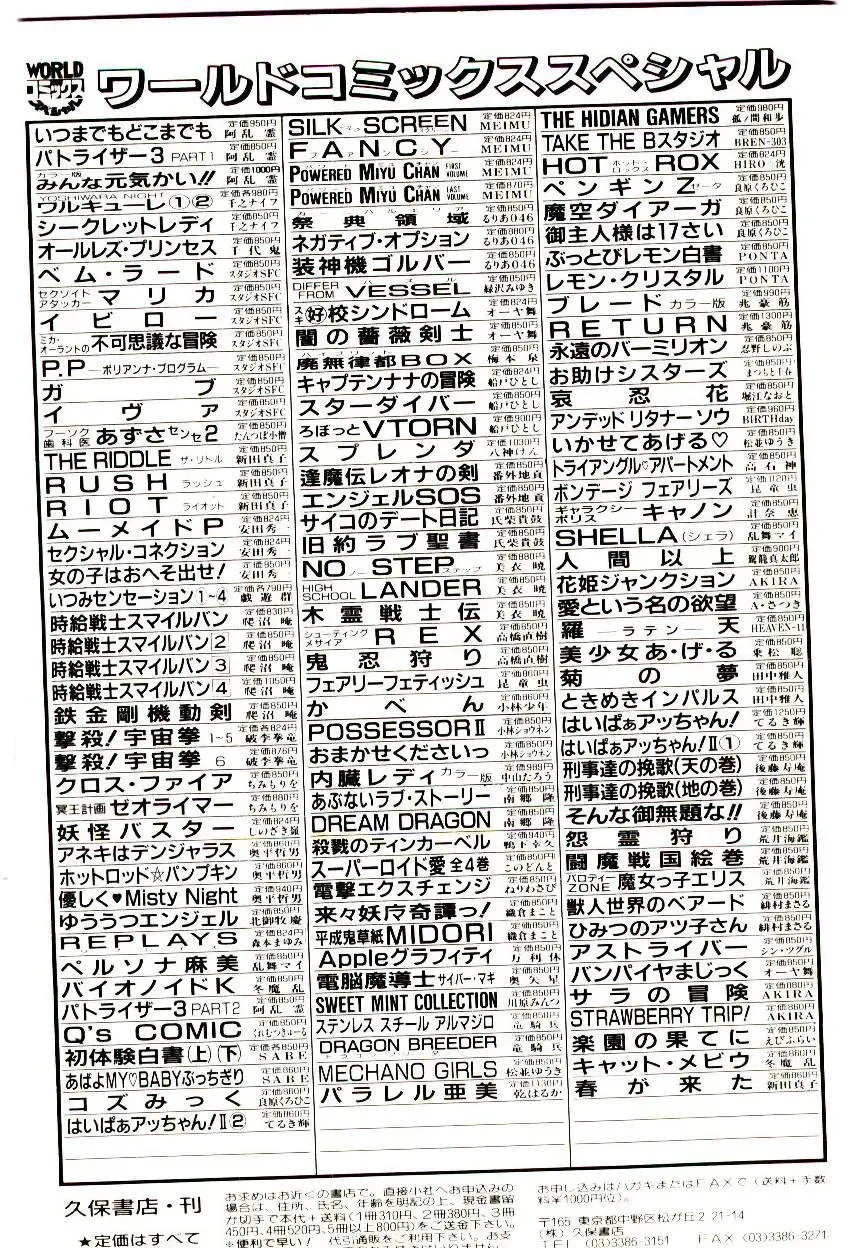 WORLD
コミックス
スペシャル
ワールドコミックススペシャル
いつまでもどこまでも 定価950円 阿乱霊
パトライザー3 PART1 定価850円 阿乱霊
カラー版 みんな元気かい!! 定価1000円 阿乱霊
YOSHIWARA NIGHT ワルキューレ①② 定価各980円 千之ナイフ
シークレットレディ 定価850円 千之ナイフ
オールレズ・プリンセス 定価850円 千代鬼
ベム・ラード 定価850円 スタジオSFC
セクソイドアタッカー マリカ 定価850円 スタジオSFC
イビロー 定価850円 スタジオSFC
ミカ・オーラントの不可思議な冒険 定価850円 スタジオSFC
P.P ―ポリアンナ・プログラム― 定価850円 スタジオSFC
ガブ 定価850円 スタジオSFC
イヴァ 定価850円 スタジオSFC
フーゾク歯科医 あずさセンセ2 定価850円 たんつぼ小僧
THE RIDDLE ザ・リドル 定価850円 新田真子
RUSH ラッシュ 定価850円 新田真子
RIOT ライオット 定価850円 新田真子
ムーメイドP 定価824円 安田秀一
セクシャル・コネクション 定価824円 安田秀一
女の子はおへそ出せ! 定価850円 安田秀一
いつみセンセーション1~4 定価各790円 戯遊群
時給戦士スマイルバン 定価830円 爬沼庵
時給戦士スマイルバン2 定価850円 爬沼庵
時給戦士スマイルバン3 定価850円 爬沼庵
時給戦士スマイルバン4 定価1050円 爬沼庵
鉄金剛機動剣 定価850円 爬沼庵
撃殺!宇宙拳 1~5 定価各824円 破李拳竜
撃殺!宇宙拳 6 定価876円 破李拳竜
クロス・ファイア 定価850円 ちみもりを
冥王計画ゼオライマー 定価880円 ちみもりを
妖怪バスター 定価824円 しのざき嶺
アネキはデンジャラス 定価860円 奥平哲男
ホットロッド☆パンプキン 定価860円 奥平哲男
優しく♥Misty Night 定価940円 奥平哲男
ゆううつエンジェル 定価850円 北御牧慶
REPLAYS 定価824円 森本まゆみ
ペルソナ麻美 定価850円 乱舞マイ
バイオノイドK 定価850円 冬魔乱
パトライザー3 PART2 定価850円 阿乱霊
Q's COMIC 定価850円 くれむつきゅーる
初体験白書(上)(下) 定価各850円 SABE
あばよMY♡BABYぶっちぎり 定価860円 SABE
コズみっく 定価860円 良原くろひこ
はいぱぁアッちゃん!II② 定価860円 てるき輝
SILK SCREEN 定価824円 MEIMU
FANCY ファンシー 定価824円 MEIMU
POWERED MIYU CHAN FIRST VOLUME 定価824円 MEIMU
POWERED MIYU CHAN LAST VOLUME 定価870円 MEIMU
祭典領域 定価850円 るりあ046
ネガティブ・オプション 定価880円 るりあ046
装神機ゴルバー 定価850円 るりあ046
DIFFER FROM VESSEL 定価850円 緑沢みゆき
スキ好校シンドローム 定価824円 オーヤ舞
闇の薔薇剣士 定価850円 オーヤ舞
廃無律都BOX 定価850円 梅本泉
キャプテンナナの冒険 定価824円 船戸ひとし
スターダイバー 定価850円 船戸ひとし
ろぼっとVTORN 定価900円 船戸ひとし
スプレンダ 定価1030円 八神けん
逢魔伝レオナの剣 定価850円 番外地貢
エンジェルSOS 定価850円 番外地貢
サイコのデート日記 定価850円 氏柴貴鼓
旧約ラブ聖書 定価850円 氏柴貴鼓
NO STEP ノーステップ 定価880円 美衣暁
HIGH SCHOOL LANDER 定価850円 美衣暁
木霊戦士伝 定価850円 美衣暁
シューティングメサイア REX 定価850円 高橋直樹
鬼忍狩り 定価850円 高橋直樹
フェアリーフェティッシュ 定価860円 昆童虫
かべん 定価860円 小林少年
POSSESSOR II 定価850円 小林ショウネン
おまかせくださいっ 定価850円 小林ショウネン
内臓レディカラー版 定価989円 中山たろう
あぶないラブ・ストーリー 定価850円 南郷隆
DREAM DRAGON 定価850円 南郷隆
殺戮のティンカーベル 定価940円 鴨下幸久
スーパーロイド愛 全4巻 定価各850円 このどんと
電撃エクスチェンジ 定価850円 ねりわさび
来々妖序奇譚っ! 定価850円 織倉まこと
平成鬼草紙MIDORI 定価850円 織倉まこと
Appleグラフィティ 定価850円 万利休
電脳魔導士 サイバー・マキ 定価850円 奥矢星
SWEET MINT COLLECTION 定価850円 川原みんつ
ステンレス スチール アルマジロ 定価850円 竜騎兵
DRAGON BREEDER 定価850円 竜騎兵
MECHANO GIRLS 定価860円 松並ゆうき
パラレル亜美 定価1130円 乾はるか
THE HIDIAN GAMERS 定価980円 孤ノ間和歩
TAKE THE Bスタジオ 定価850円 BREN-303
HOT ROX ホットロックス 定価824円 HIRO洸
ペンギンZ ゼータ 定価850円 良原くろひこ
魔空ダイアーガ 定価850円 良原くろひこ
御主人様は17さい 定価850円 良原くろひこ
ぶっとびレモン白書 定価850円 PONTA
レモン・クリスタル 定価1100円 PONTA
ブレードカラー版 定価990円 兆豪筋
RETURN 定価1300円 兆豪筋
永遠のバーミリオン 定価850円 忍野しのぶ
お助けシスターズ 定価850円 まつもと千春
哀忍花 定価850円 堀江なおと
アンデッドリタナーソウ 定価960円 BIRTHday
いかせてあげる♡ 定価850円 松並ゆうき
トライアングル♡アパートメント 定価850円 高石神
ボンデージ フェアリーズ 定価1120円 昆童虫
ギャラクシーポリス キャノン 定価850円 計奈恵
SHELLA(シェラ) 定価850円 乱舞マイ
人間以上 定価900円 駕籠真太郎
花姫ジャンクション 定価850円 AKIRA
愛という名の欲望 定価850円 A・さつき
羅天 ―ラテン― 定価850円 HEAVEN-11
美少女あ・げ・る 定価850円 乗松聡
菊の夢 定価850円 田中雅人
ときめきインパルス 定価850円 田中雅人
はいぱぁアッちゃん! 定価1250円 てるき輝
はいぱぁアッちゃん!II① 定価850円 てるき輝
刑事達の挽歌(天の巻) 定価850円 後藤寿庵
刑事達の挽歌(地の巻) 定価850円 後藤寿庵
そんな御無題な!! 定価850円 後藤寿庵
怨霊狩り 定価850円 荒井海鑑
闘魔戦国絵巻 定価850円 荒井海鑑
パロティーZONE 魔女っ子エリス 定価850円 荒井海鑑
獣人世界のベアード 定価850円 緋村まさる
ひみつのアツ子さん 定価850円 緋村まさる
アストライバー 定価850円 シン・ツグル
バンパイヤまじっく 定価850円 オーヤ舞
サラの冒険 定価880円 AKIRA
STRAWBERRY TRIP! 定価860円 AKIRA
楽園の果てに 定価850円 えびふらい
キャット・メビウ 定価860円 冬魔乱
春が来た 定価860円 新田真子
久保書店・刊
★定価はすべて
お求めはお近くの書店で。直接小社へお申込みの
場合は、住所、氏名、年齢を明記の上、現金書留
か切手で本代+送料(1冊310円、2冊380円、3冊
450円、4冊520円、5冊以上800円)をご送金下さい。
※便利で早い! 代引通販をご利用下さい。お支
お申し込みはハガキまたはFAXで(送料+手数
料¥1000円位)。
〒165 東京都中野区松が丘2-21-14
(株)久保書店
TEL (03)3386-3151 FAX (03)3386-3271